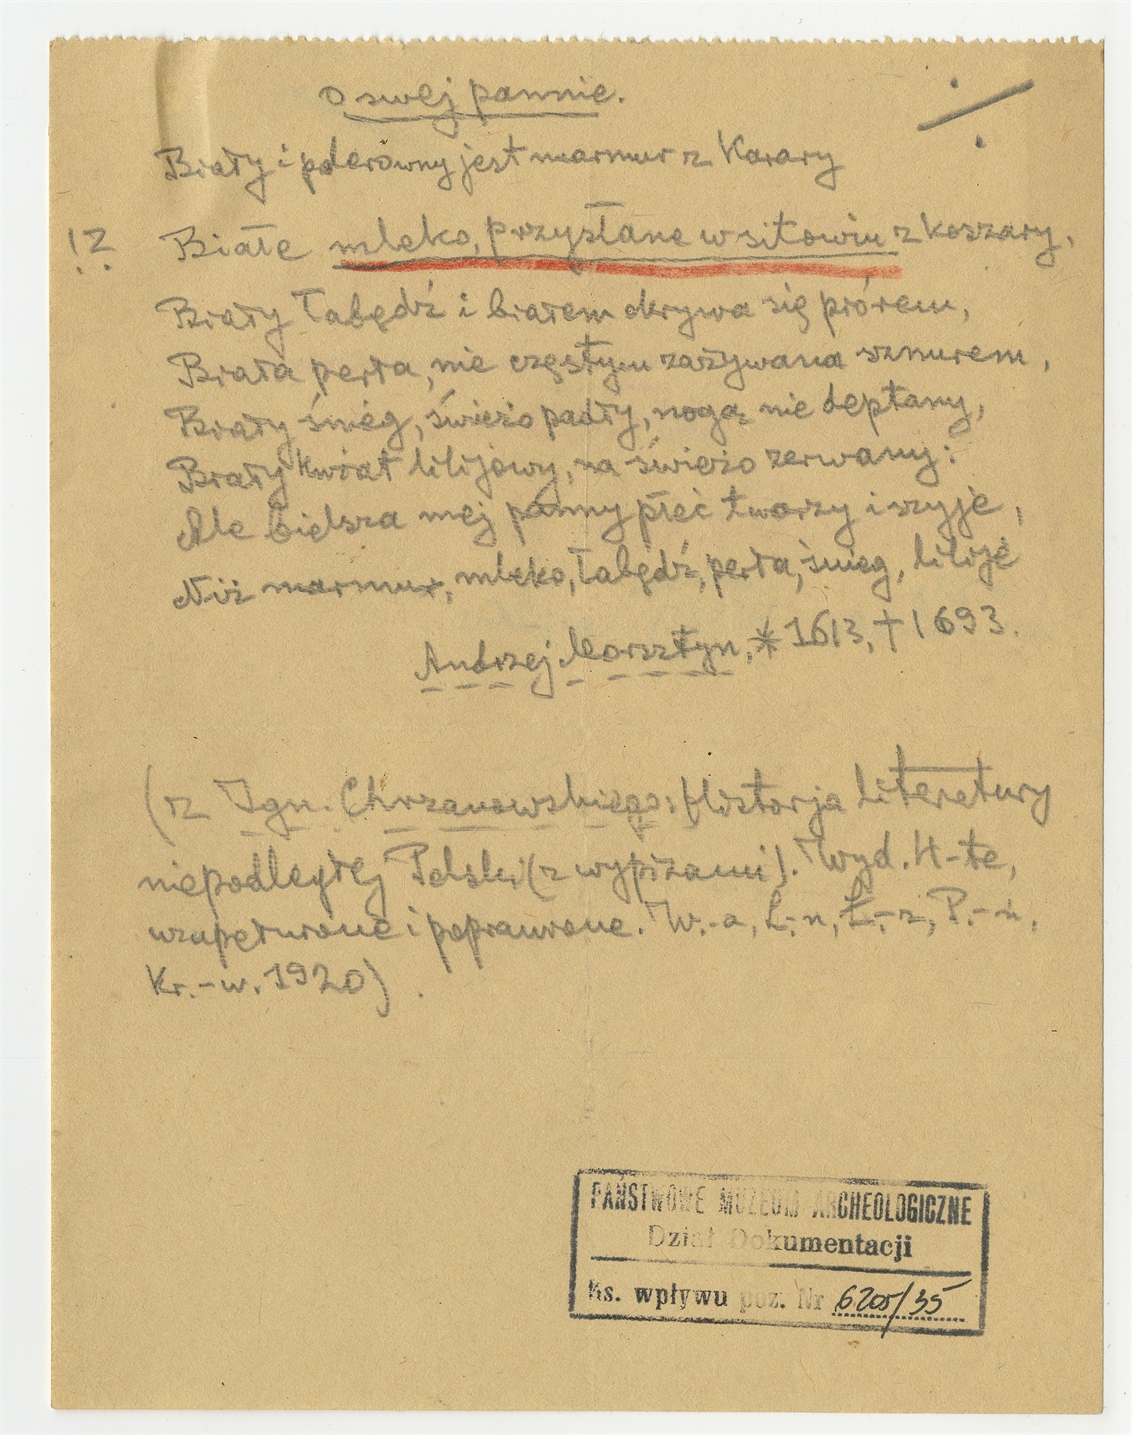 o swej pannie.
Biały i polerowny jest marmur z Karary
!? Białe mleko, przysłane w sitowiu z koszary,
Biały łabędź i białem okrywa się piórem,
Biała perła, nie częstym zażywana sznurem,
Biały śnieg, świeżo padły, nogą nie deptany,
Biały kwiat lilijowy, na świeżo zerwany:
Ale bielsza mej panny płeć twarzy i szyje,
Niż marmur, mleko, łabędź, perła, śnieg, lilije
Andrzej Morsztyn, * 1613, † 1693.
(z Ign. Chrzanowskiego: Historja literatury
niepodległej Polski (z wypisami). Wyd. 4-te,
uzupełnione i poprawione. W.-a, L.-n, Ł.-z, P.-ń,
Kr.-w. 1920).
PAŃSTWOWE MUZEUM ARCHEOLOGICZNE
Dział Dokumentacji
Ks. wpływu poz. Nr 6205/35